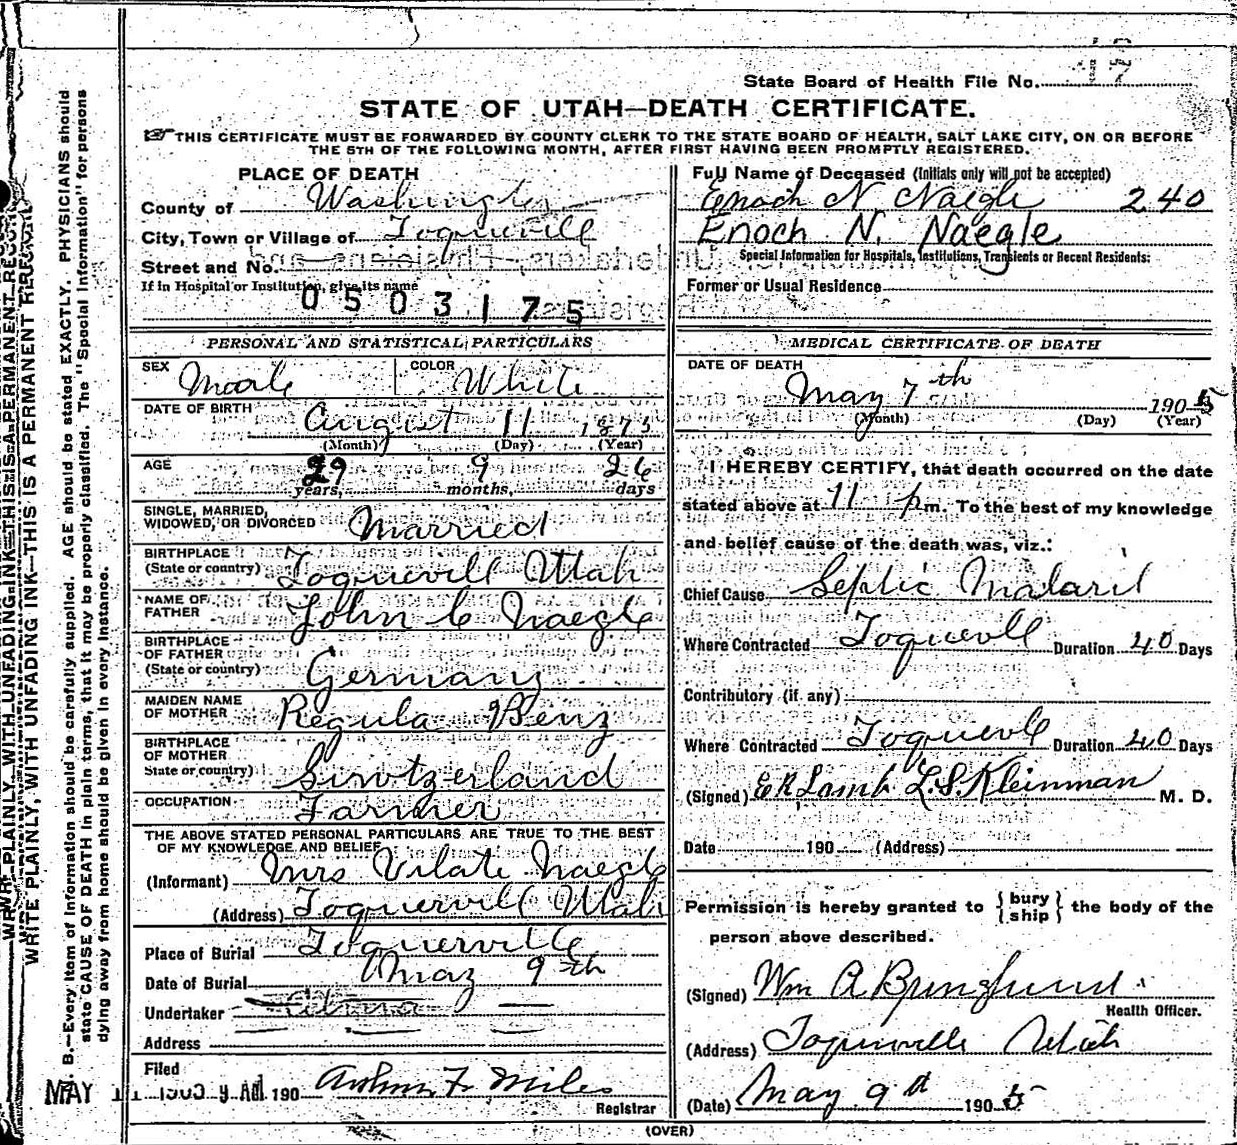 State Board of Health File No.
STATE OF UTAH—DEATH CERTIFICATE.
THIS CERTIFICATE MUST BE FORWARDED BY COUNTY CLERK TO THE STATE BOARD OF HEALTH, SALT LAKE CITY, ON OR BEFORE
THE 5TH OF THE FOLLOWING MONTH, AFTER FIRST HAVING BEEN PROMPTLY REGISTERED.
PLACE OF DEATH
County of Washington
City, Town or Village of Toquervill
Street and No.
If in Hospital or Institution, give its name
0503175
Full Name of Deceased (Initials only will not be accepted)
Enoch N Naegle 240
Enoch N. Naegle
Special Information for Hospitals, Institutions, Transients or Recent Residents:
Former or Usual Residence
PERSONAL AND STATISTICAL PARTICULARS
SEX Moale COLOR White
DATE OF BIRTH August 11 1875
(Month) (Day) (Year)
AGE 29 9 26
years, months, days
SINGLE, MARRIED,
WIDOWED, OR DIVORCED Married
BIRTHPLACE
(State or country) Toquervill Utah
NAME OF
FATHER John C Naegle
BIRTHPLACE
OF FATHER
(State or country) Germany
MAIDEN NAME
OF MOTHER Regula Benz
BIRTHPLACE
OF MOTHER
State or country) Switzerland
OCCUPATION Farmer
THE ABOVE STATED PERSONAL PARTICULARS ARE TRUE TO THE BEST
OF MY KNOWLEDGE AND BELIEF
(Informant) Mrs Vilate Naegle
(Address) Toquervill Utah
Place of Burial Toquerville
Date of Burial May 9th
Undertaker
Address
Filed
MAY 11 1905 9 AM 190 Arthur F. Miles
Registrar
MEDICAL CERTIFICATE OF DEATH
DATE OF DEATH
May 7th 1905
(Month) (Day) (Year)
I HEREBY CERTIFY, that death occurred on the date
stated above at 11 p m. To the best of my knowledge
and belief cause of the death was, viz.:
Chief Cause Septic Malaril
Where Contracted Toquervll Duration 40 Days
Contributory (if any)
Where Contracted Toquervl Duration 40 Days
(Signed) E R Lamb L. S. Kleinman M. D.
Date 190 (Address)
Permission is hereby granted to {bury
ship} the body of the
person above described.
(Signed) Wm A
Health Officer.
(Address) Toquerville Utah
(Date) May 9th 1905
(OVER)
WRITE PLAINLY, WITH UNFADING INK—THIS IS A PERMANENT RECORD
B.—Every item of information should be carefully supplied. AGE should be stated EXACTLY. PHYSICIANS should
state CAUSE OF DEATH in plain terms, that it may be properly classified. The "Special Information" for persons
dying away from home should be given in every instance.